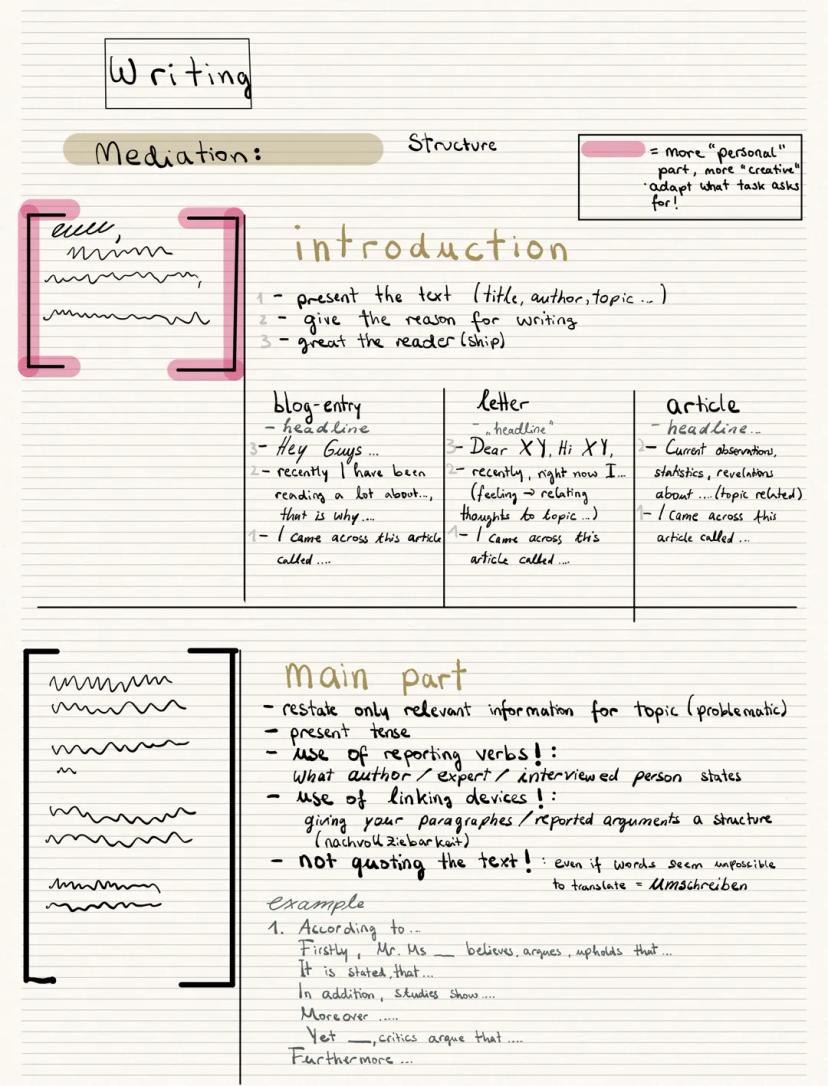 Writing
Mediation:
Structure
= more "personal"
part, more "creative"
adapt what task asks
for!
introduction
1 - present the text (title, author, topic ... )
2 - give the reason for writing
3 - great the reader (ship)
blog-entry
- headline
3- Hey Guys ...
2- recently I have been
reading a lot about...,
that is why ....
1- I came across this article
called ....
letter
- „headline"
3- Dear XY, Hi XY,
2- recently, right now I...
(feeling → relating
thoughts to topic ...)
1- I came across this
article called ....
article
- headline...
2- Current observations,
statistics, revelations
about .... (topic related)
1- I came across this
article called ...
main part
- restate only relevant information for topic (problematic)
- present tense
- use of reporting verbs! :
What author / expert / interviewed person states
- use of linking devices ! :
giving your paragraphes / reported arguments a structure
(nachvollziebarkeit)
- not quoting the text! : even if words seem unposcible
to translate = Umschreiben
example
1. According to ...
Firstly, Mr. Ms __ believes, argues, upholds that...
It is stated, that...
In addition, studies show....
Moreover .....
Yet __, critics argue that ....
Furthermore ...